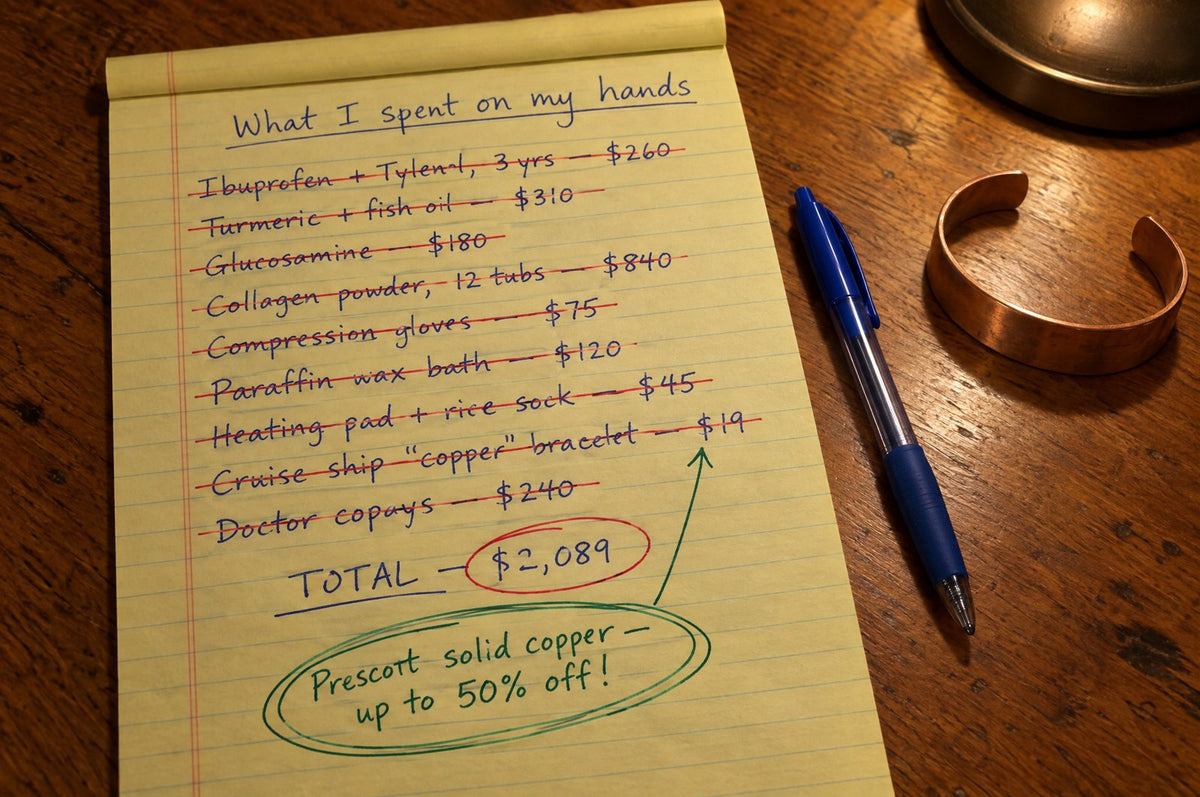 What I spent on my hands
Ibuprofen + Tylenol, 3 yrs — $260
Turmeric + fish oil — $310
Glucosamine — $180
Collagen powder, 12 tubs — $840
Compression gloves — $75
Paraffin wax bath — $120
Heating pad + rice sock — $45
Cruise ship "copper" bracelet — $19
Doctor copays — $240
TOTAL — $2,089
Prescott solid copper —
up to 50% off!